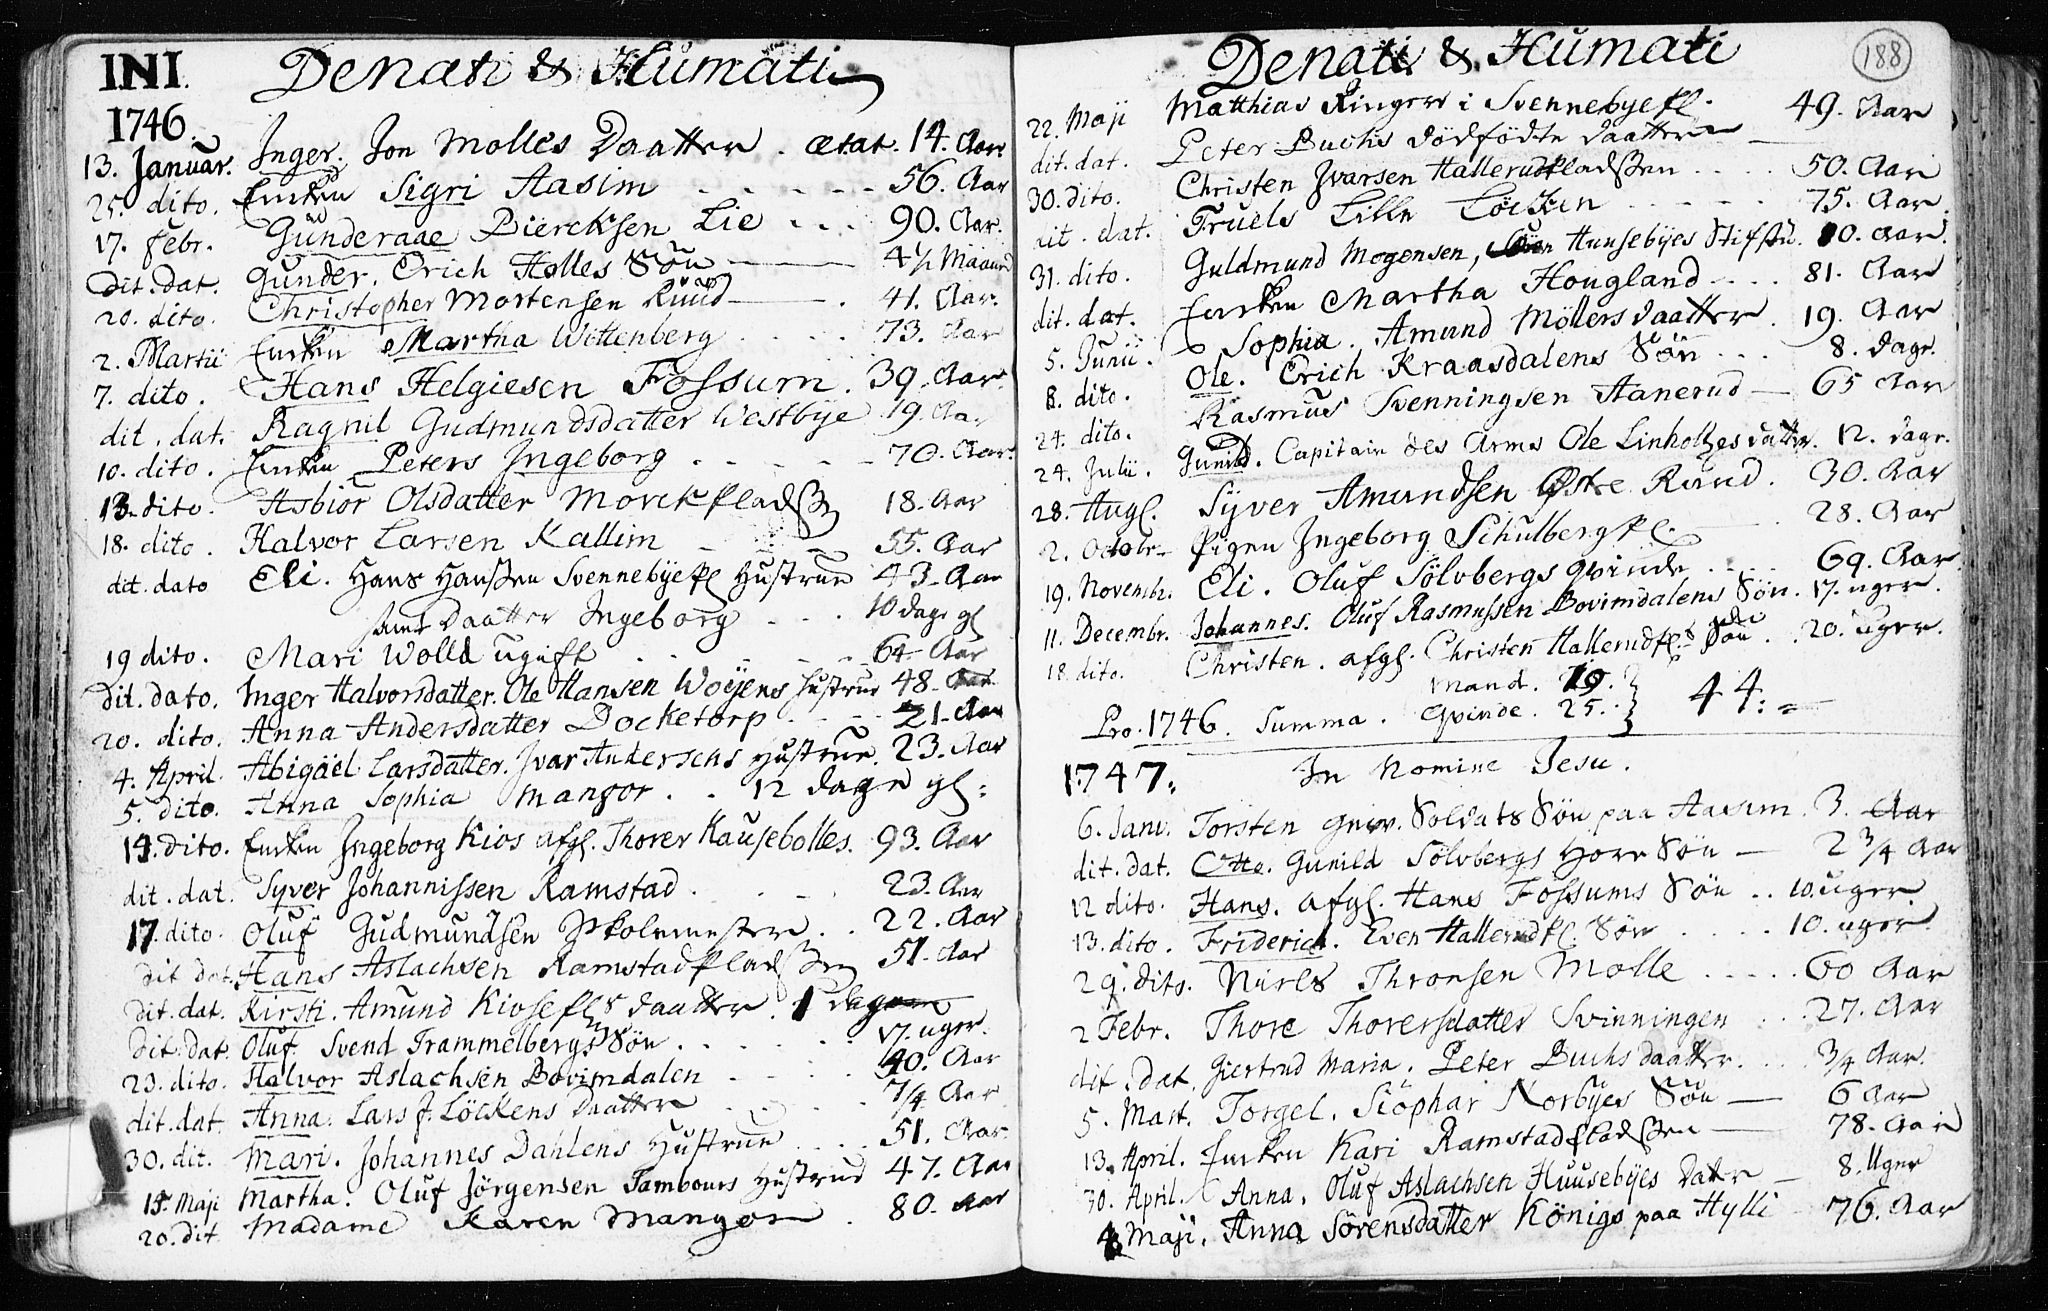 INI. Denati & Humati
1746.
13. Januar. Inger. Jon Molles Daatter. ætat. 14. Aar.
25. dito. Encken Sigri Aasim - - - - - 56. Aar
17. febr. Gunderaae Biercksen Lie . . . 90. Aar.
dit. dat. Gunder. Erich Holles Søn 4½ Maaned
20. dito. Christopher Mortensen Ruud . 41. Aar.
2. Martii Encken Martha Wittenberg . . . . 73. Aar
7. dito. Hans Helgiesen Fossum. 39. Aar.
dit. dat. Ragnil Gudmundsdatter Westbye 19. Aar
10. dito. Encken Peters Ingeborg - - - - 70. Aar.
13. dito. Asbior Olsdatter Morckpladß 18. Aar
18. dito. Halvor Larsen Kallim - - - 55. Aar
dit. dato Eli. Hans Hanßen Svennebyepl Hustrue 43. Aar
samt Daatter Ingeborg - - . 10 dage gl
19 dito. Mari Wolld ugift . . . . 64. Aar
dit. dato. Inger Halvorsdatter. Ole Hansen Woyens Hustrue 48. Aar
20. dito. Anna Andersdatter Docketorp . - - - 21. Aar
4. April Abigäel Larsdatter. Ivar Andersens Hustrue. 23. Aar
5. dito. Anna Sophia Mangor . . 12 dage gl:
14. dito. Encken Ingeborg Kios afgl. Thorer Hausebolles. 93. Aar
dit. dat. Syver Johannissen Ramstad . . . 23. Aar
17. dito. Oluf Gudmundsen Skolemester . . 22. Aar
dit dat. Hans Aslachsen Ramstadpladßen 51. Aar
dit. dat. Kirsti. Amund Kiosepls daatter. 1 dag
dit. dat. Oluf. Svend Trammelbergs Søn . . . . . 17. uger.
23. dito. Halvor Aslachsen Bovimdalen - - - - 40. Aar
dit. dat. Anna. Lars J. Löckens Daatter . . . . . 7/4 Aar
30. dit. Mari. Johannes Dahlens Hustrue . . . 51. Aar.
15. Maji Martha. Oluf Jörgensen Tambours Hustrue 47. Aar
20. dit Madame Karen Mangor . 80. Aar
Denati & Humati 188
22. Maji Matthias Ringer i Svennebyepl. 49. Aar
dit. dat. Peter Buchs dödfödte Daatter
30. dito. Christen Ivarsen Hallerudpladßen . . . . 50. Aar
dit. dat. Truels Lille Löcken - - - - - 75. Aar.
31. dito. Guldmund Mogensen, Huusebÿes Stifsøn. 10. Aar.
dit. dat. Encken Martha Hougland - . . . 81. Aar
5. Junii. Sophia. Amund Möllers daatter . 19. Aar
8. dito. Ole. Erich Kraasdalens Søn . . . 8. dage.
24. dito. Rasmus Svenningsen Hanerud — 65 Aar
24. Julii. Gunild. Capitain des Arms Ole Linholtzes datter. 12. dage.
28. Augl. Syver Amundsen Østre Ruud. 30. Aar
2. Octobr. Pigen Ingeborg Schulbergpl. 28. Aar
19. Novembr. Eli. Oluf Sölvbergs qvinde . . . . 69. Aar
11. Decembr. Johannes. Oluf Rasmussen Bovimdalens Søn. 17. uger.
18. dito. Christen. afgl. Christen Hallerudpls Søn . . 20. uger.
Mand. 19.
Pro. 1746. Summa. Qvinde. 25. } 44.
1747. In Nomine Jesu.
6. Janv. Torsten Gnw. Soldats Søn paa Aasim. 3. Aar
dit. dat. Otto. Gunild Sölvbergs Hore Søn — 2 3/4 Aar
12 dito. Hans. afgl. Hans Fossums Søn . . 10. uger
13. dito. Friderich. Even Hallerudpl. Søn . . . . . 10. uger.
29. dito. Niels Thronsen Molle . . . . . 60 Aar
2 Febr. Thore Thorersdatter Svinningen . . . 27. Aar
dit. dat. Giertrud Maria. Peter Buchs daatter . . . . 3/4 Aar.
5. Mart. Torgel. Siöphar Norbÿes Søn — 6 Aar
13. April. Encken Kari Ramstadpladßen — 78. Aar
30. April. Anna. Oluf Aslachsen Huusebÿes Datter — 8. Uger
4. Maji. Anna Sörensdatter Königs paa Hylli 76. Aar